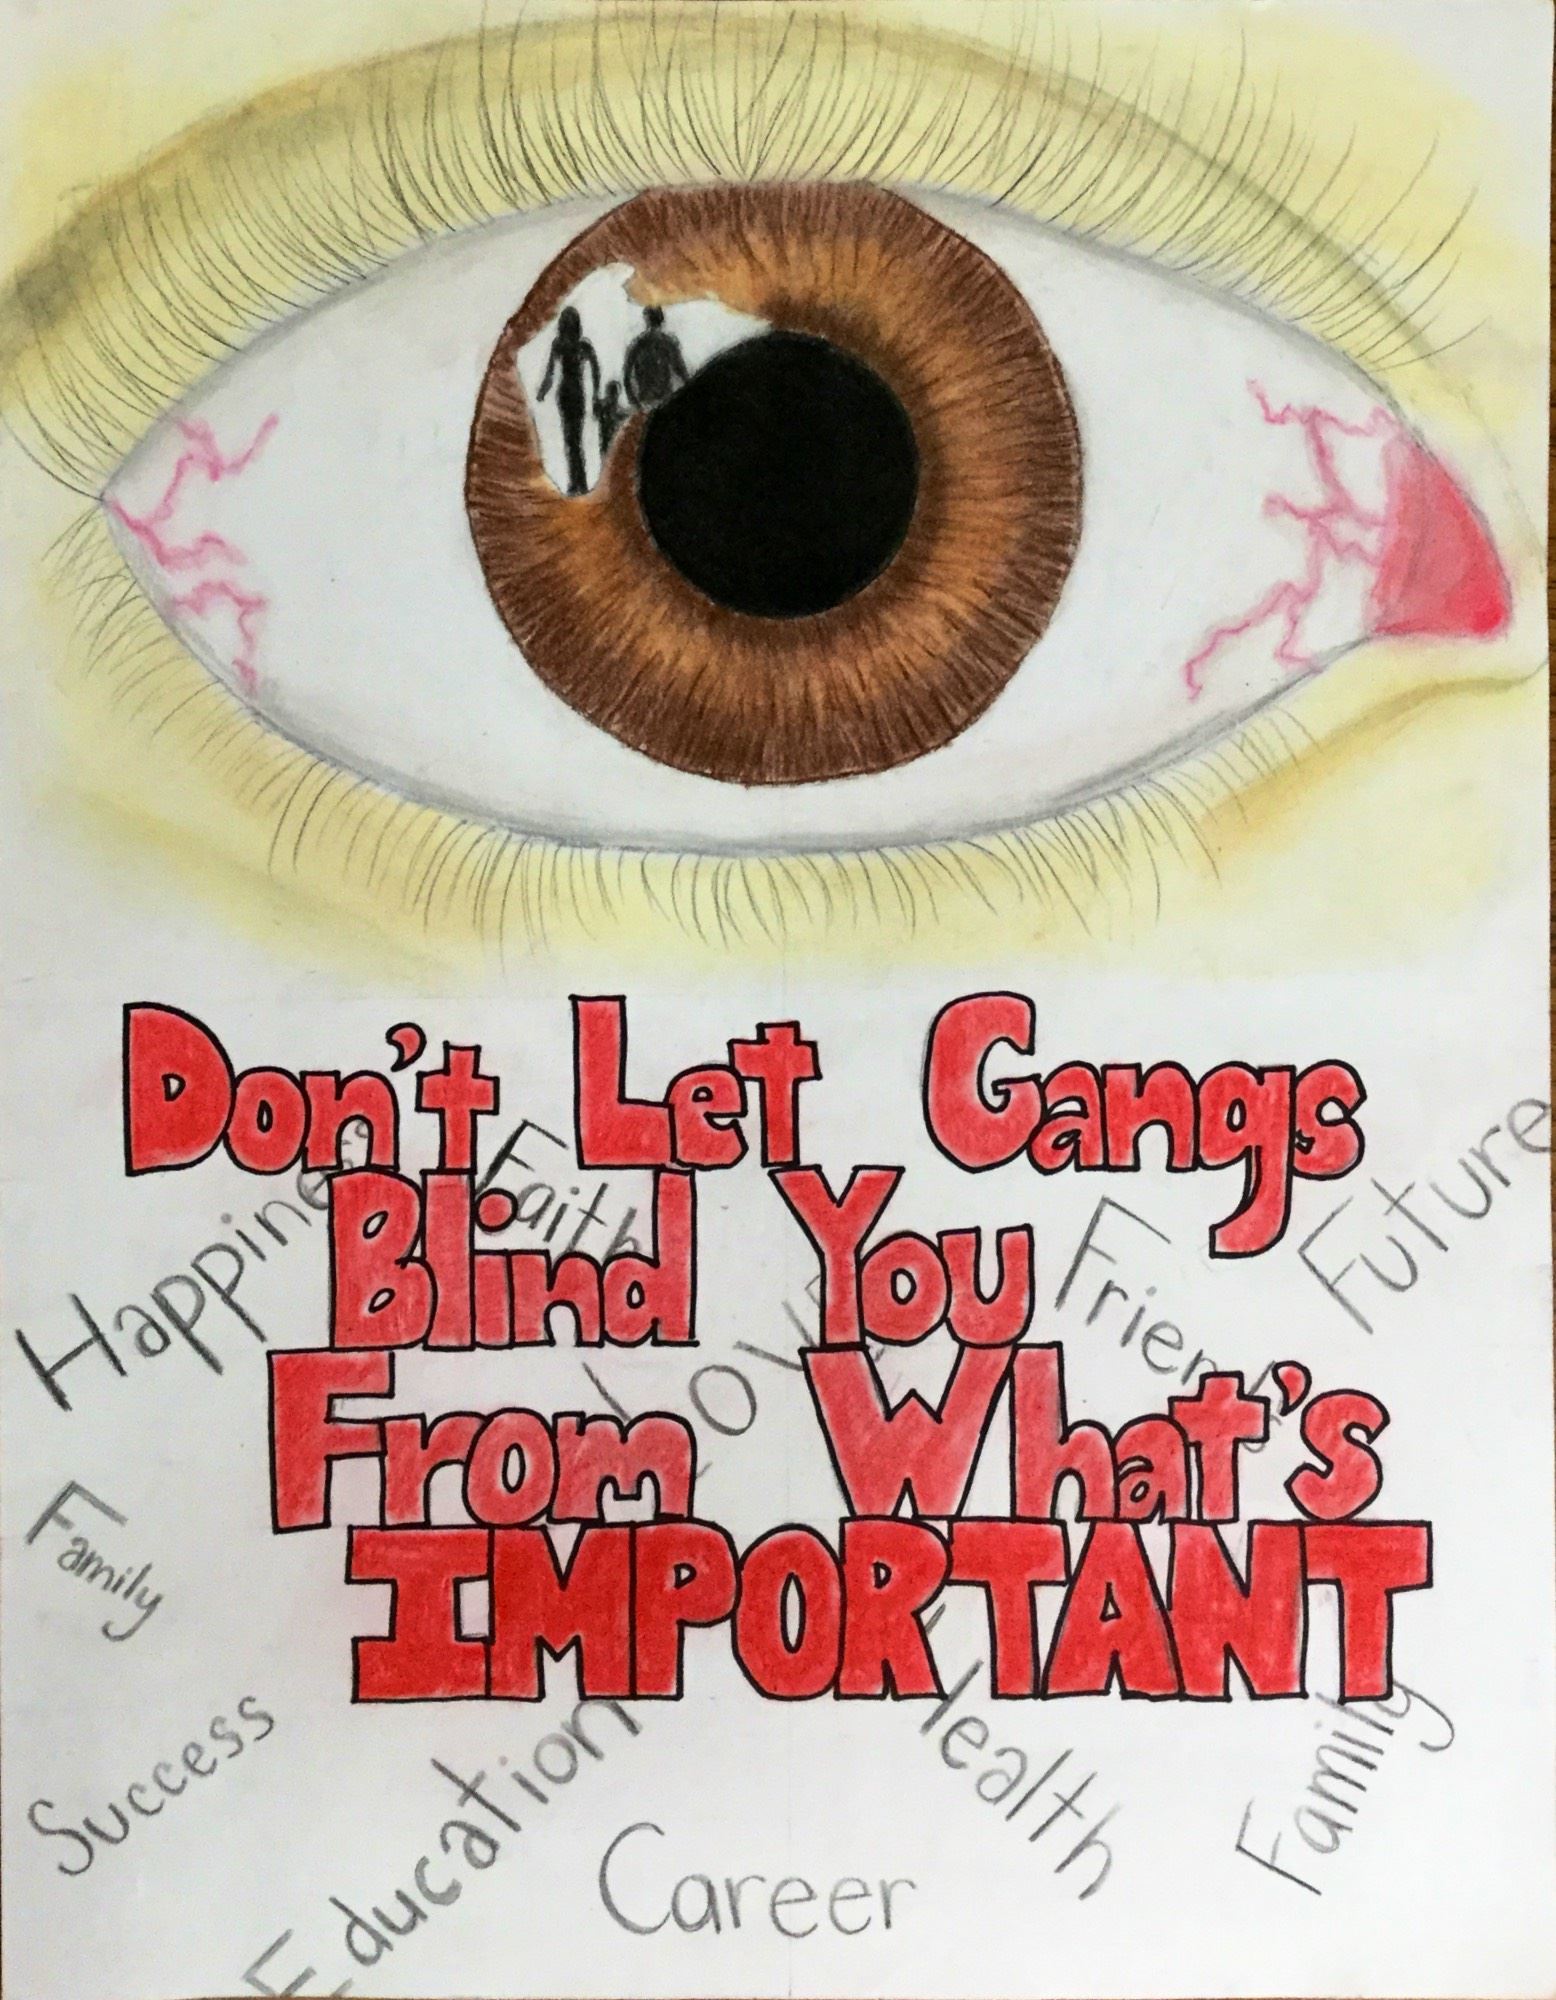 Don't Let Gangs
Blind You
From What's
IMPORTANT
Happiness
Faith
Love
Friends
Future
Family
Success
Education
Career
Health
Family